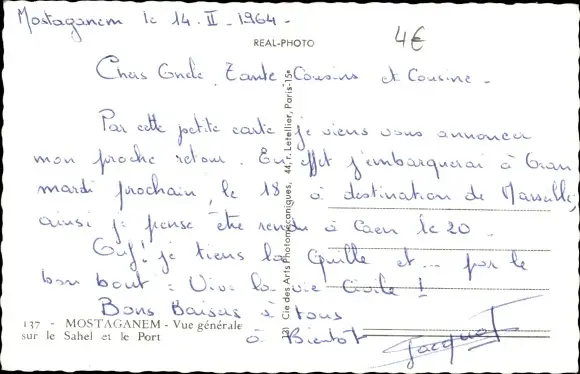 Mostaganem le 14. II - 1964 -
4€
REAL-PHOTO
Chers Oncle, Tante Cousins et Cousine -
Par cette petite carte je viens vous annoncer
mon proche retour. En effet j'embarquerai à Oran
mardi prochain, le 18 à destination de Marseille,
ainsi je pense être rendu à Caen le 20 -
Ouf! je tiens la Quille et... par le
bon bout : Vive la vie Civile !
Bons Baisers à tous
à Bientôt Jacquot
137 - MOSTAGANEM - Vue générale
sur le Sahel et le Port
Cie des Arts Photomécaniques, 44, r. Letellier, Paris-15e